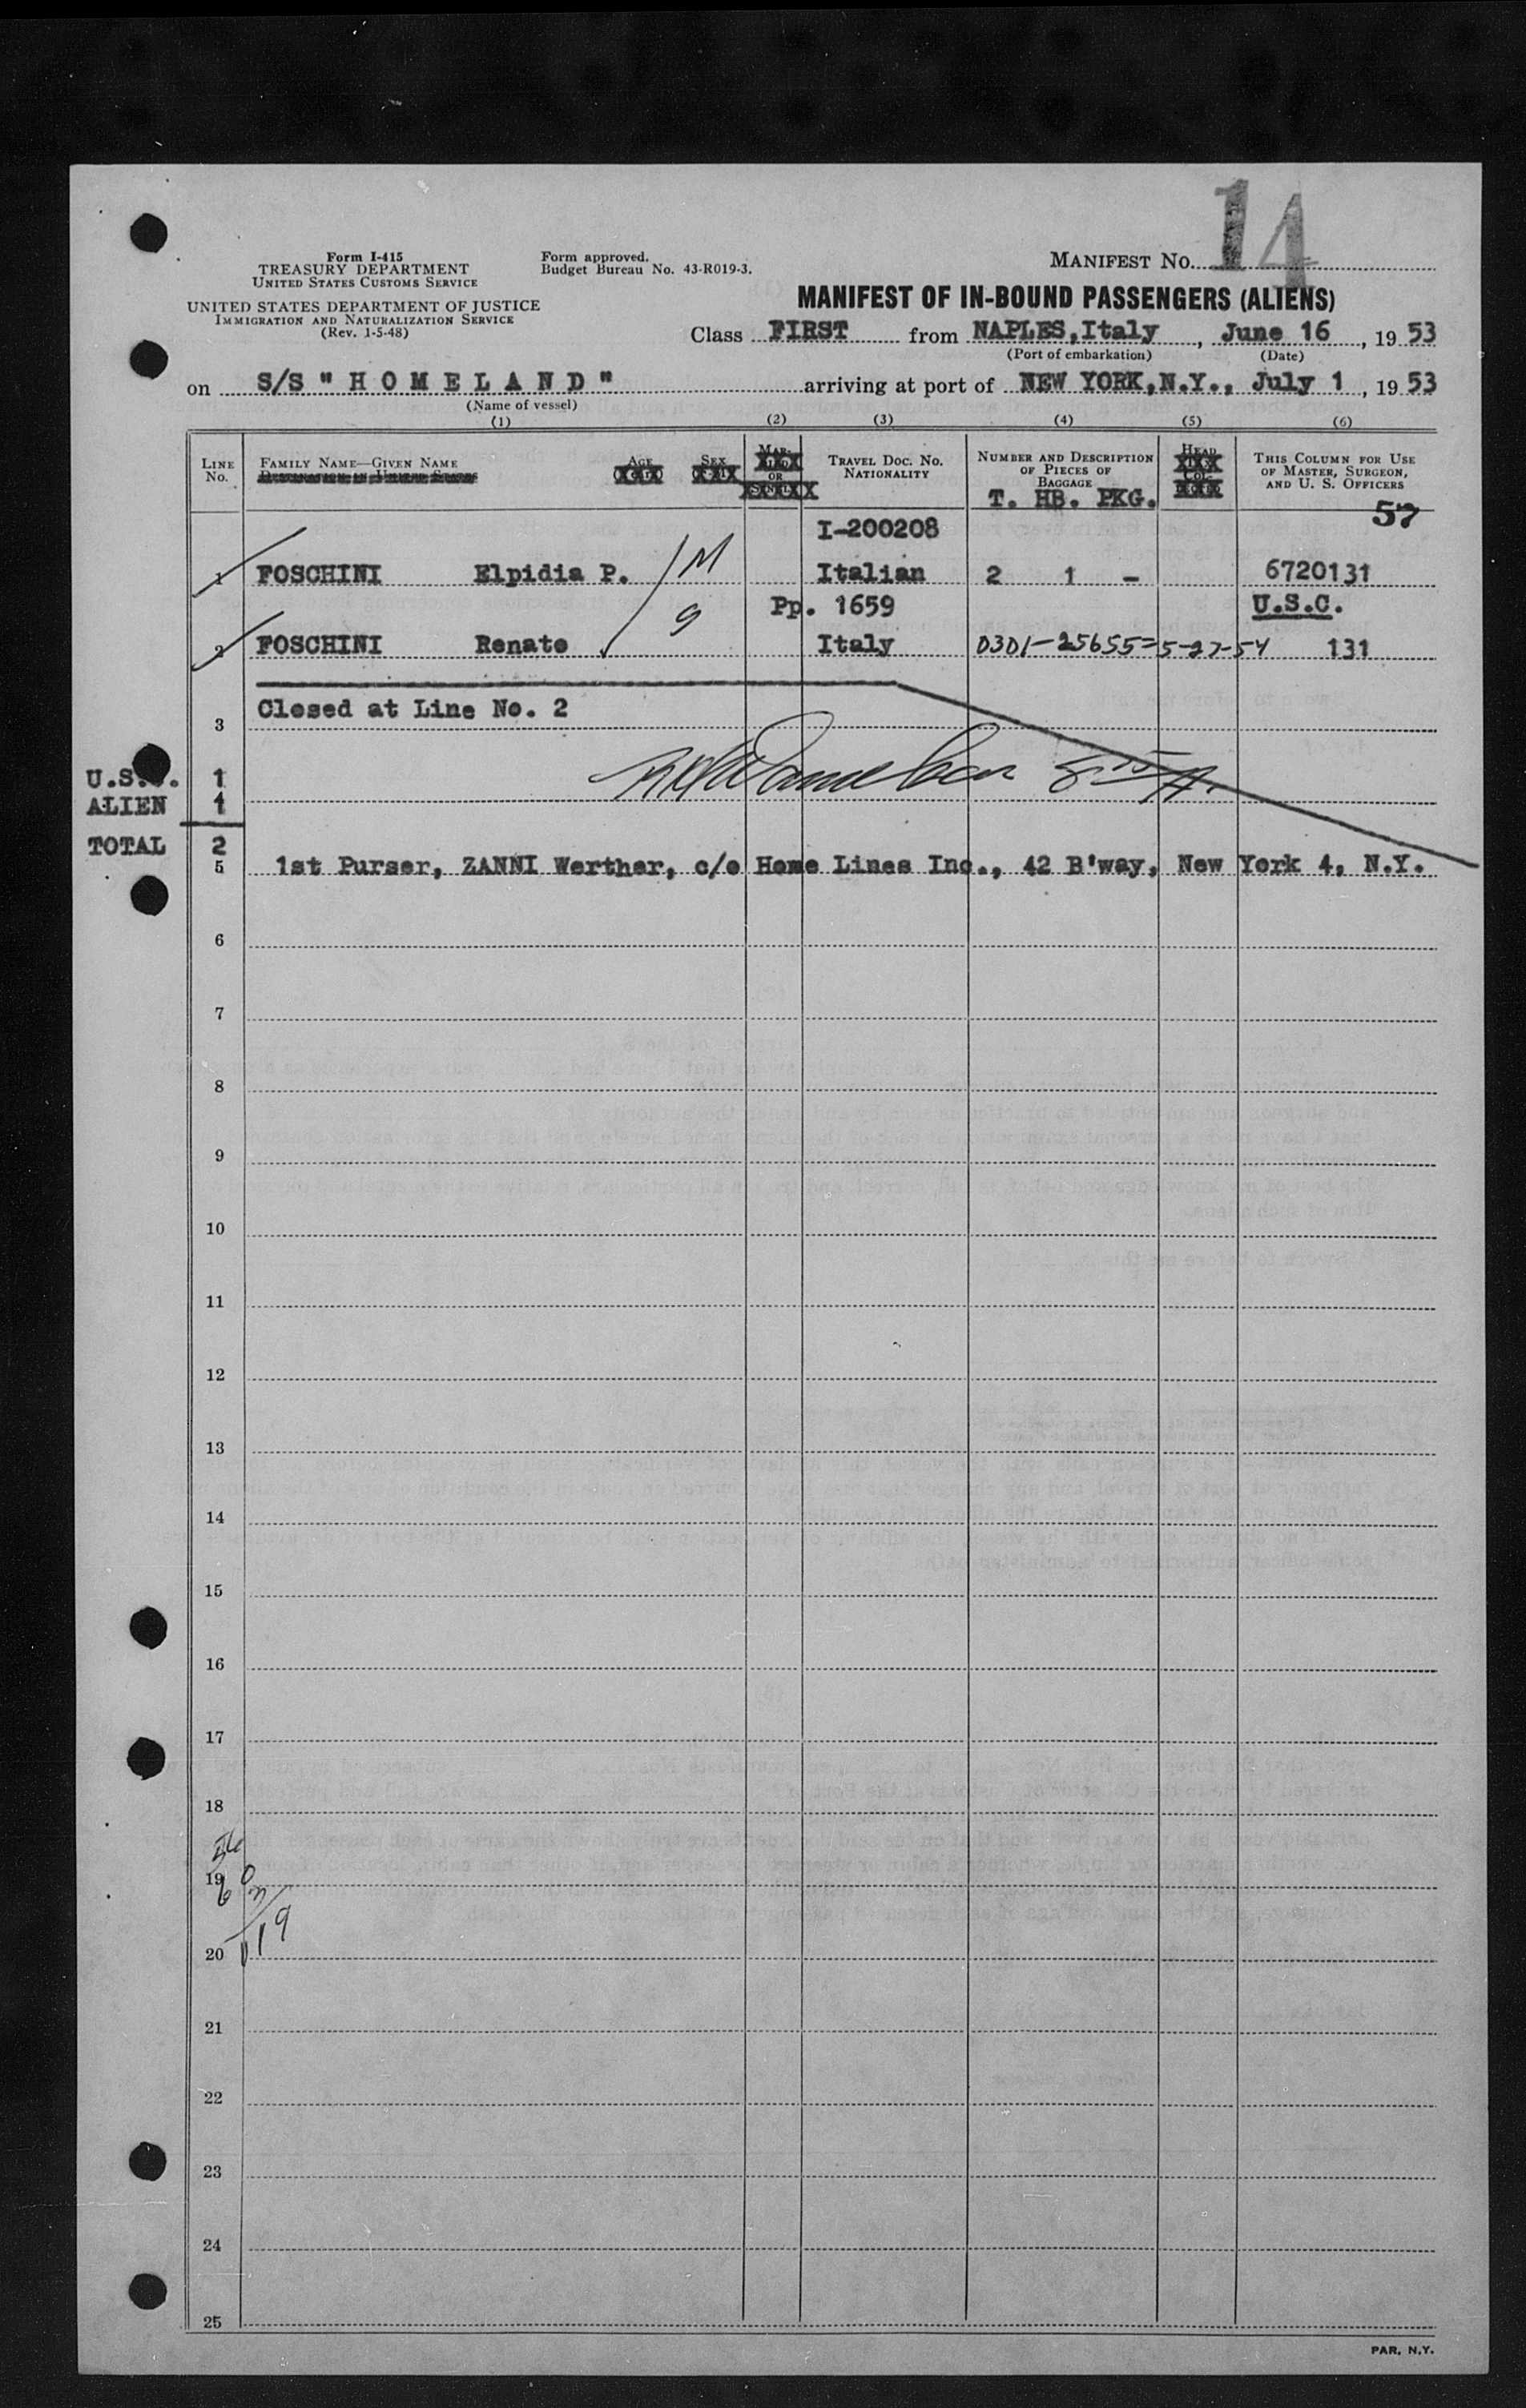 14
Form I-415
TREASURY DEPARTMENT
UNITED STATES CUSTOMS SERVICE
UNITED STATES DEPARTMENT OF JUSTICE
IMMIGRATION AND NATURALIZATION SERVICE
(Rev. 1-5-48)
Form approved.
Budget Bureau No. 43-R019-3.
MANIFEST No.
MANIFEST OF IN-BOUND PASSENGERS (ALIENS)
Class FIRST from NAPLES,Italy, June 16, 1953
(Port of embarkation) (Date)
on S/S "HOMELAND" arriving at port of NEW YORK,N.Y., July 1, 1953
(Name of vessel)
(1) (2) (3) (4) (5) (6)
LINE No.
FAMILY NAME—GIVEN NAME
AGE
SEX
MAR-
OR
TRAVEL DOC. NO. NATIONALITY
NUMBER AND DESCRIPTION OF PIECES OF BAGGAGE
T. HB. PKG.
HEAD
THIS COLUMN FOR USE OF MASTER, SURGEON, AND U. S. OFFICERS
57
I-200208
1 FOSCHINI Elpidia P. M Italian 2 1 - 6720131
9 Pp. 1659 U.S.C.
2 FOSCHINI Renato Italy 0301-25655=5-27-54 131
Closed at Line No. 2
3
U.S. . 1
ALIEN 1
TOTAL 2
5 1st Purser, ZANNI Werther, c/o Home Lines Inc., 42 B'way, New York 4, N.Y.
6
7
8
9
10
11
12
13
14
15
16
17
18
19
20
21
22
23
24
25
PAR, N.Y.